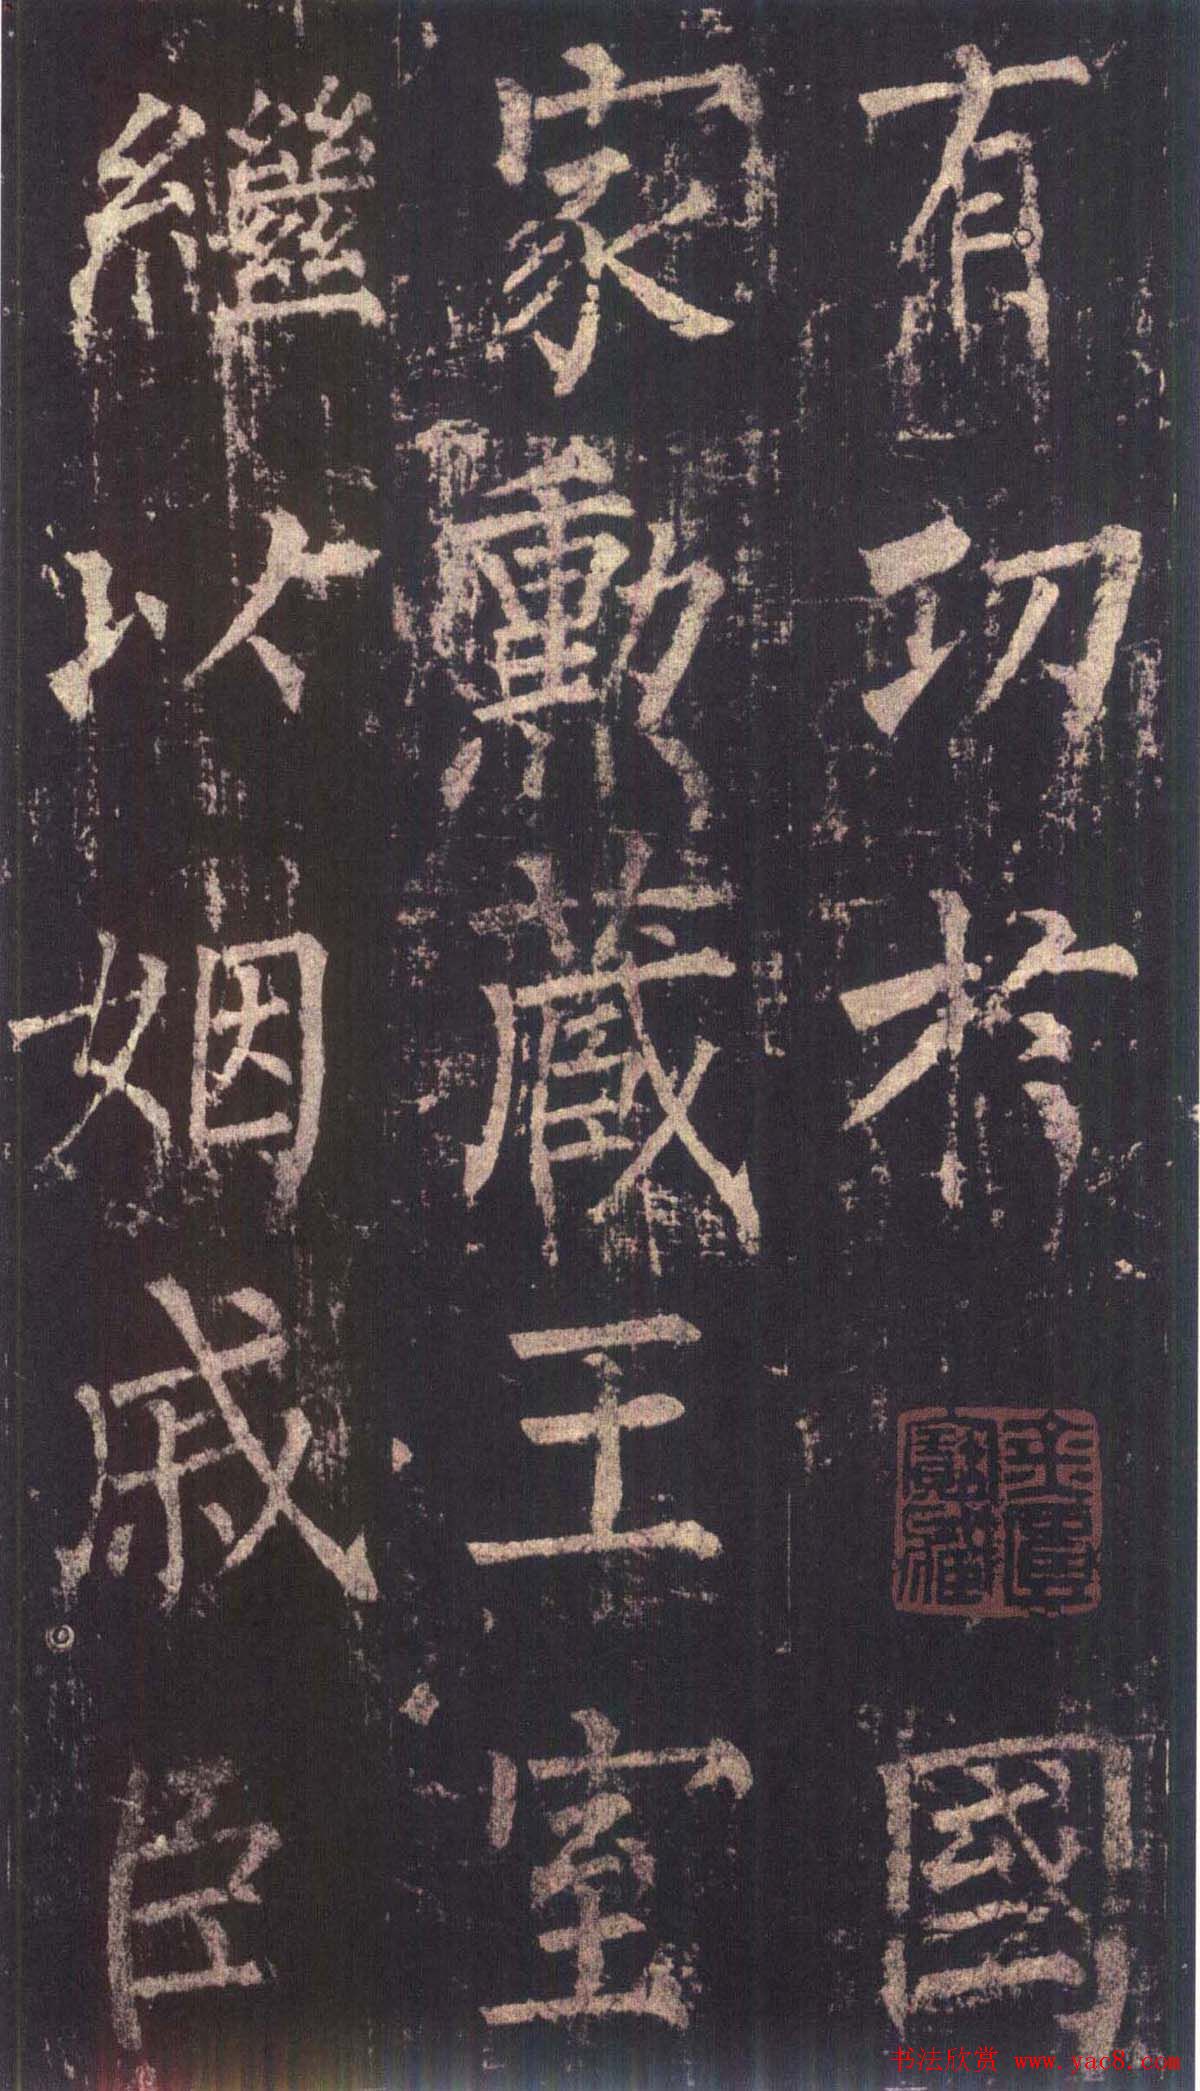 有功於國
家勳蔵王室
繼以姻戚臣
书法欣赏 www.yac8.com